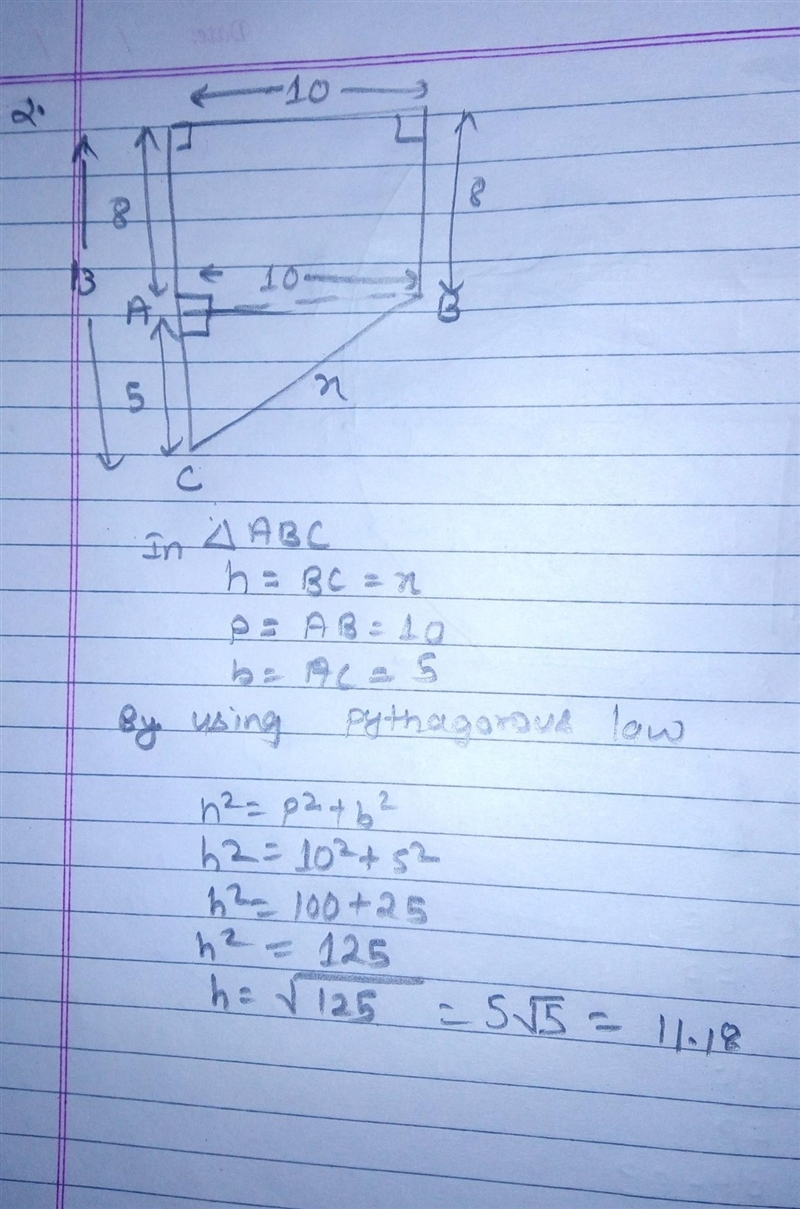 Date:
2.
10
8
8
13
10
A
B
5
x
C
In △ ABC
h = BC = x
p = AB = 10
b = AC = 5
By using pythagorous law
h² = p² + b²
h2 = 10² + 5²
h² = 100 + 25
h² = 125
h = √125 = 5√5 = 11.18